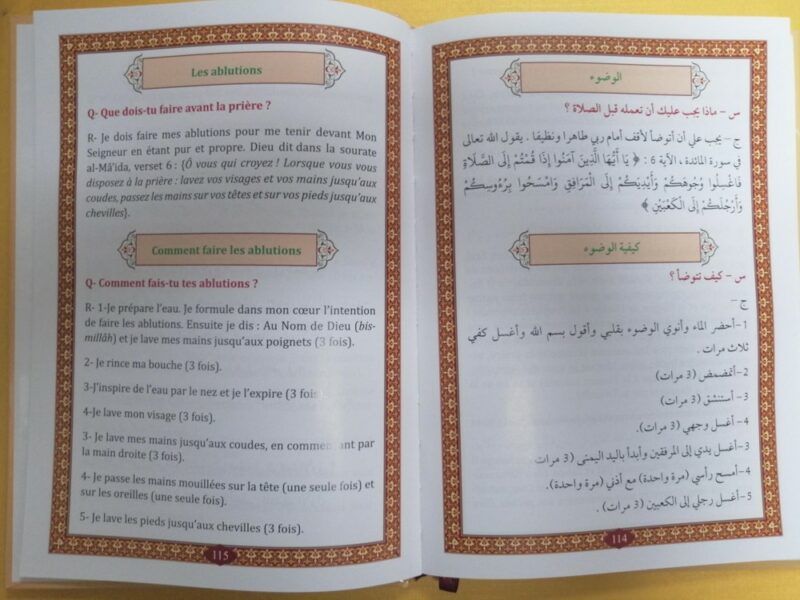 Les ablutions
Q- Que dois-tu faire avant la prière ?
R- Je dois faire mes ablutions pour me tenir devant Mon
Seigneur en étant pur et propre. Dieu dit dans la sourate
al-Mâ'ida, verset 6 : {Ô vous qui croyez ! Lorsque vous vous
disposez à la prière : lavez vos visages et vos mains jusqu'aux
coudes, passez les mains sur vos têtes et sur vos pieds jusqu'aux
chevilles}.
Comment faire les ablutions
Q- Comment fais-tu tes ablutions ?
R- 1-Je prépare l'eau. Je formule dans mon cœur l'intention
de faire les ablutions. Ensuite je dis : Au Nom de Dieu (bis-
millâh) et je lave mes mains jusqu'aux poignets (3 fois).
2- Je rince ma bouche (3 fois).
3-J'inspire de l'eau par le nez et je l'expire (3 fois
4-Je lave mon visage (3 fois).
3- Je lave mes mains jusqu'aux coudes, en commençant par
la main droite (3 fois).
4- Je passe les mains mouillées sur la tête (une seule fois) et
sur les oreilles (une seule fois).
5- Je lave les pieds jusqu'aux chevilles (3 fois).
115
الوضوء
س – ماذا يجب عليك أن تعمله قبل الصلاة ؟
ج – يجب علي أن أتوضأ لأقف أمام ربي طاهرا ونظيفا . يقول الله تعالى
في سورة المائدة ، الآية 6 : ﴿ يَا أَيُّهَا الَّذِينَ آمَنُوا إِذَا قُمْتُمْ إِلَى الصَّلَاةِ
فَاغْسِلُوا وُجُوهَكُمْ وَأَيْدِيَكُمْ إِلَى الْمَرَافِقِ وَامْسَحُوا بِرُءُوسِكُمْ
وَأَرْجُلَكُمْ إِلَى الْكَعْبَيْنِ ﴾
كيفية الوضوء
س – كيف تتوضأ ؟
ج –
1-أحضر الماء وأنوي الوضوء بقلبي وأقول بسم الله وأغسل كفي
ثلاث مرات .
2-أتمضمض (3 مرات)
3- أستنشق (3 مرات)
4- أغسل وجهي (3 مرات).
3-أغسل يدي إلى المرفقين وأبدأ باليد اليمنى (3 مرات
4-أمسح رأسي (مرة واحدة) مع أذني (مرة واحدة).
5-أغسل رجلي إلى الكعبين (3 مرات) .
114